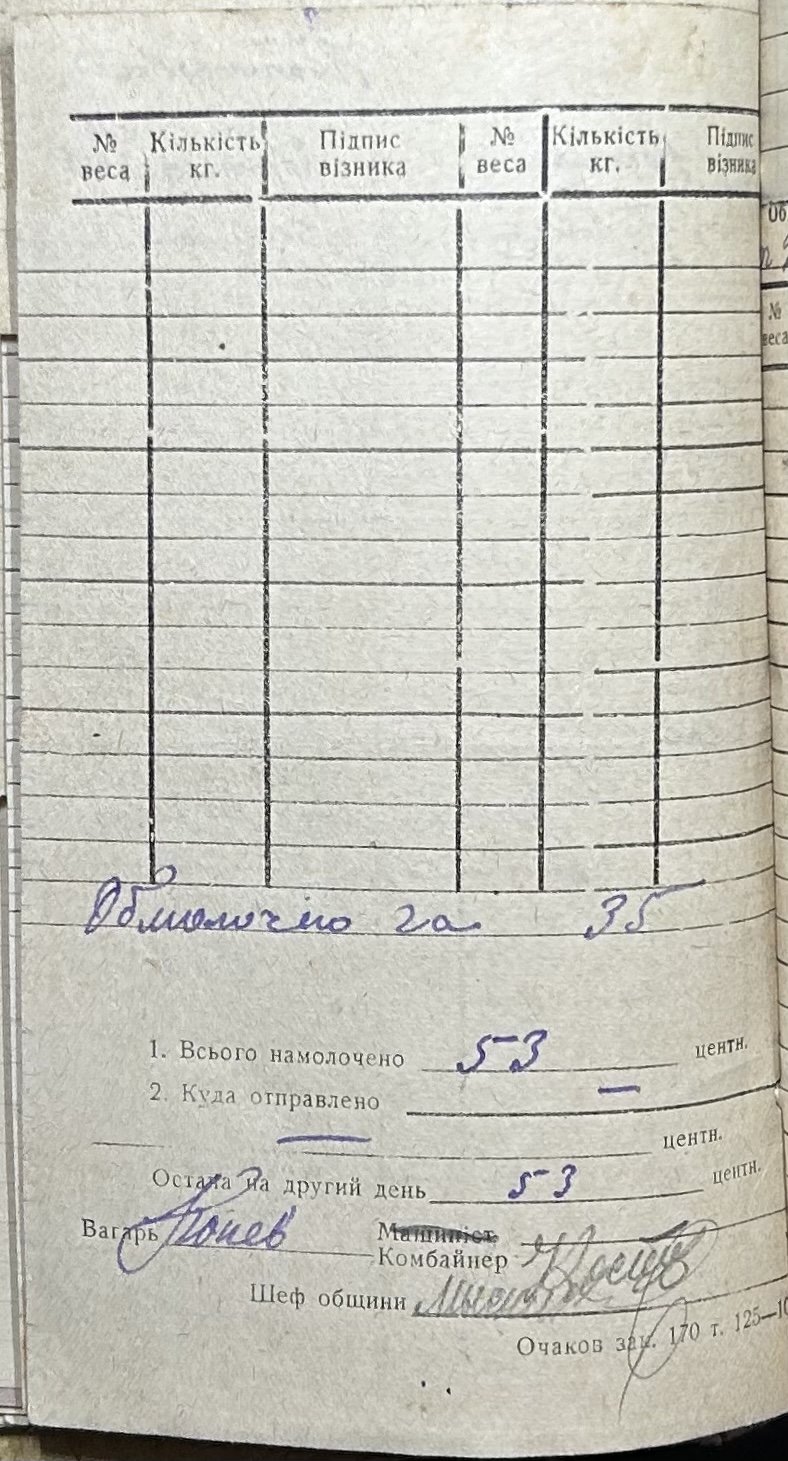 № веса Кількість кг. Підпис візника № веса Кількість кг. Підпис візника
Обмолочено га 35
1. Всього намолочено 53 центн.
2. Куда отправлено —
— центн.
Остача на другий день 53 центн.
Вагарь Машиніст
Комбайнер
Шеф общини
Очаков зак. 170 т. 125—10
Об
№
веса